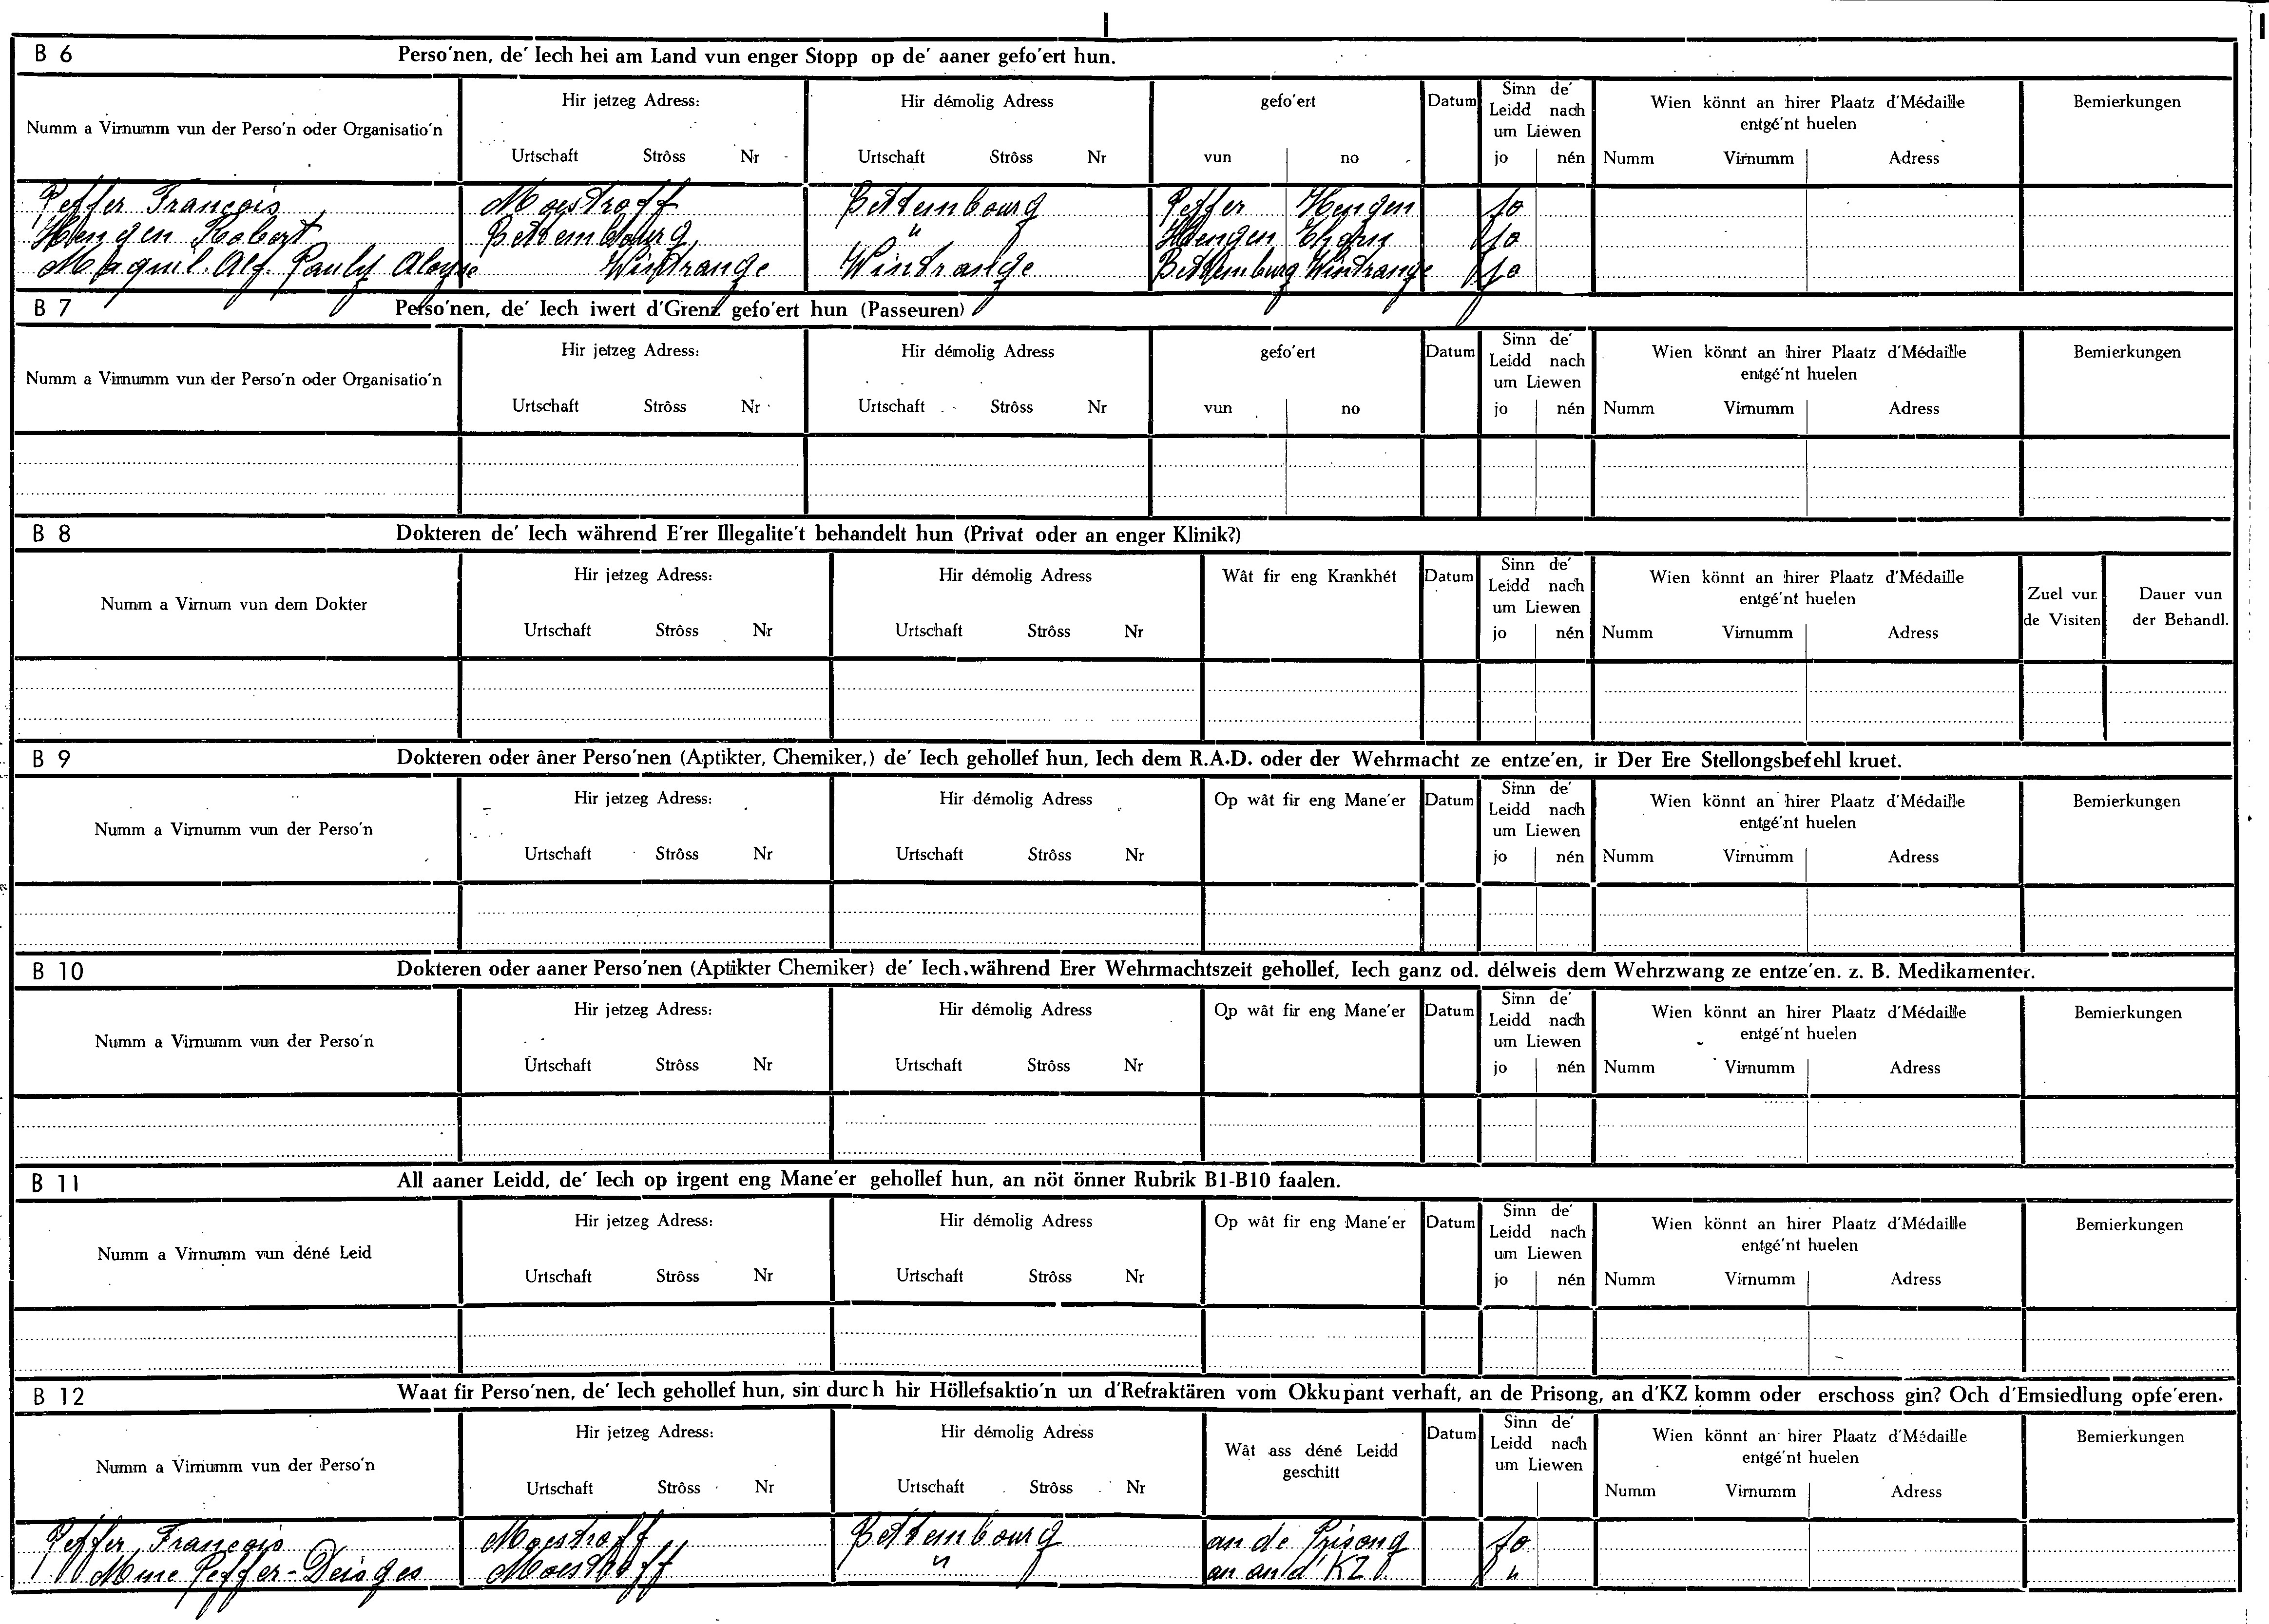 B 6 Perso'nen, de' Iech hei am Land vun enger Stopp op de' aaner gefo'ert hun.
Numm a Virnumm vun der Perso'n oder Organisatio'n Hir jetzeg Adress: Hir démolig Adress gefo'ert Datum Sinn de' Leidd nach um Liewen Wien könnt an hirer Plaatz d'Médaille entgé'nt huelen Bemierkungen
Urtschaft Strôss Nr Urtschaft Strôss Nr vun no jo nén Numm Virnumm Adress
Peffer François Moestroff Bettembourg Peffer Hengen Jo
Hengen Robert Bettembourg " Hengen Jo
Alf. Pauly Aloyse Wintrange Wintrange Bettemburg Wintrange Jo
B 7 Perso'nen, de' Iech iwert d'Grenz gefo'ert hun (Passeuren)
Numm a Virnumm vun der Perso'n oder Organisatio'n Hir jetzeg Adress: Hir démolig Adress gefo'ert Datum Sinn de' Leidd nach um Liewen Wien könnt an hirer Plaatz d'Médaille entgé'nt huelen Bemierkungen
Urtschaft Strôss Nr Urtschaft Strôss Nr vun no jo nén Numm Virnumm Adress
B 8 Dokteren de' Iech während E'rer Illegalite't behandelt hun (Privat oder an enger Klinik?)
Numm a Virnum vun dem Dokter Hir jetzeg Adress: Hir démolig Adress Wât fir eng Krankhét Datum Sinn de' Leidd nach um Liewen Wien könnt an hirer Plaatz d'Médaille entgé'nt huelen Zuel vun de Visiten Dauer vun der Behandl.
Urtschaft Strôss Nr Urtschaft Strôss Nr jo nén Numm Virnumm Adress
B 9 Dokteren oder âner Perso'nen (Aptikter, Chemiker,) de' Iech gehollef hun, Iech dem R.A.D. oder der Wehrmacht ze entze'en, ir Der Ere Stellongsbefehl kruet.
Numm a Virnumm vun der Perso'n Hir jetzeg Adress: Hir démolig Adress Op wât fir eng Mane'er Datum Sinn de' Leidd nach um Liewen Wien könnt an hirer Plaatz d'Médaille entgé'nt huelen Bemierkungen
Urtschaft Strôss Nr Urtschaft Strôss Nr jo nén Numm Virnumm Adress
B 10 Dokteren oder aaner Perso'nen (Aptikter Chemiker) de' Iech während Erer Wehrmachtszeit gehollef, Iech ganz od. délweis dem Wehrzwang ze entze'en. z. B. Medikamenter.
Numm a Virnumm vun der Perso'n Hir jetzeg Adress: Hir démolig Adress Op wât fir eng Mane'er Datum Sinn de' Leidd nach um Liewen Wien könnt an hirer Plaatz d'Médaille entgé'nt huelen Bemierkungen
Urtschaft Strôss Nr Urtschaft Strôss Nr jo nén Numm Virnumm Adress
B 11 All aaner Leidd, de' Iech op irgent eng Mane'er gehollef hun, an nöt önner Rubrik B1-B10 faalen.
Numm a Virnumm vun déné Leid Hir jetzeg Adress: Hir démolig Adress Op wât fir eng Mane'er Datum Sinn de' Leidd nach um Liewen Wien könnt an hirer Plaatz d'Médaille entgé'nt huelen Bemierkungen
Urtschaft Strôss Nr Urtschaft Strôss Nr jo nén Numm Virnumm Adress
B 12 Waat fir Perso'nen, de' Iech gehollef hun, sin durch hir Höllefsaktio'n un d'Refraktären vom Okkupant verhaft, an de Prisong, an d'KZ komm oder erschoss gin? Och d'Emsiedlung opfe'eren.
Numm a Virnumm vun der Perso'n Hir jetzeg Adress: Hir démolig Adress Wât ass déné Leidd geschitt Datum Sinn de' Leidd nach um Liewen Wien könnt an hirer Plaatz d'Médaille entgé'nt huelen Bemierkungen
Urtschaft Strôss Nr Urtschaft Strôss Nr Numm Virnumm Adress
Peffer François Moestroff Bettembourg an de Prisong Jo
Mme Peffer-Deisges Moestroff " an an d'KZ "